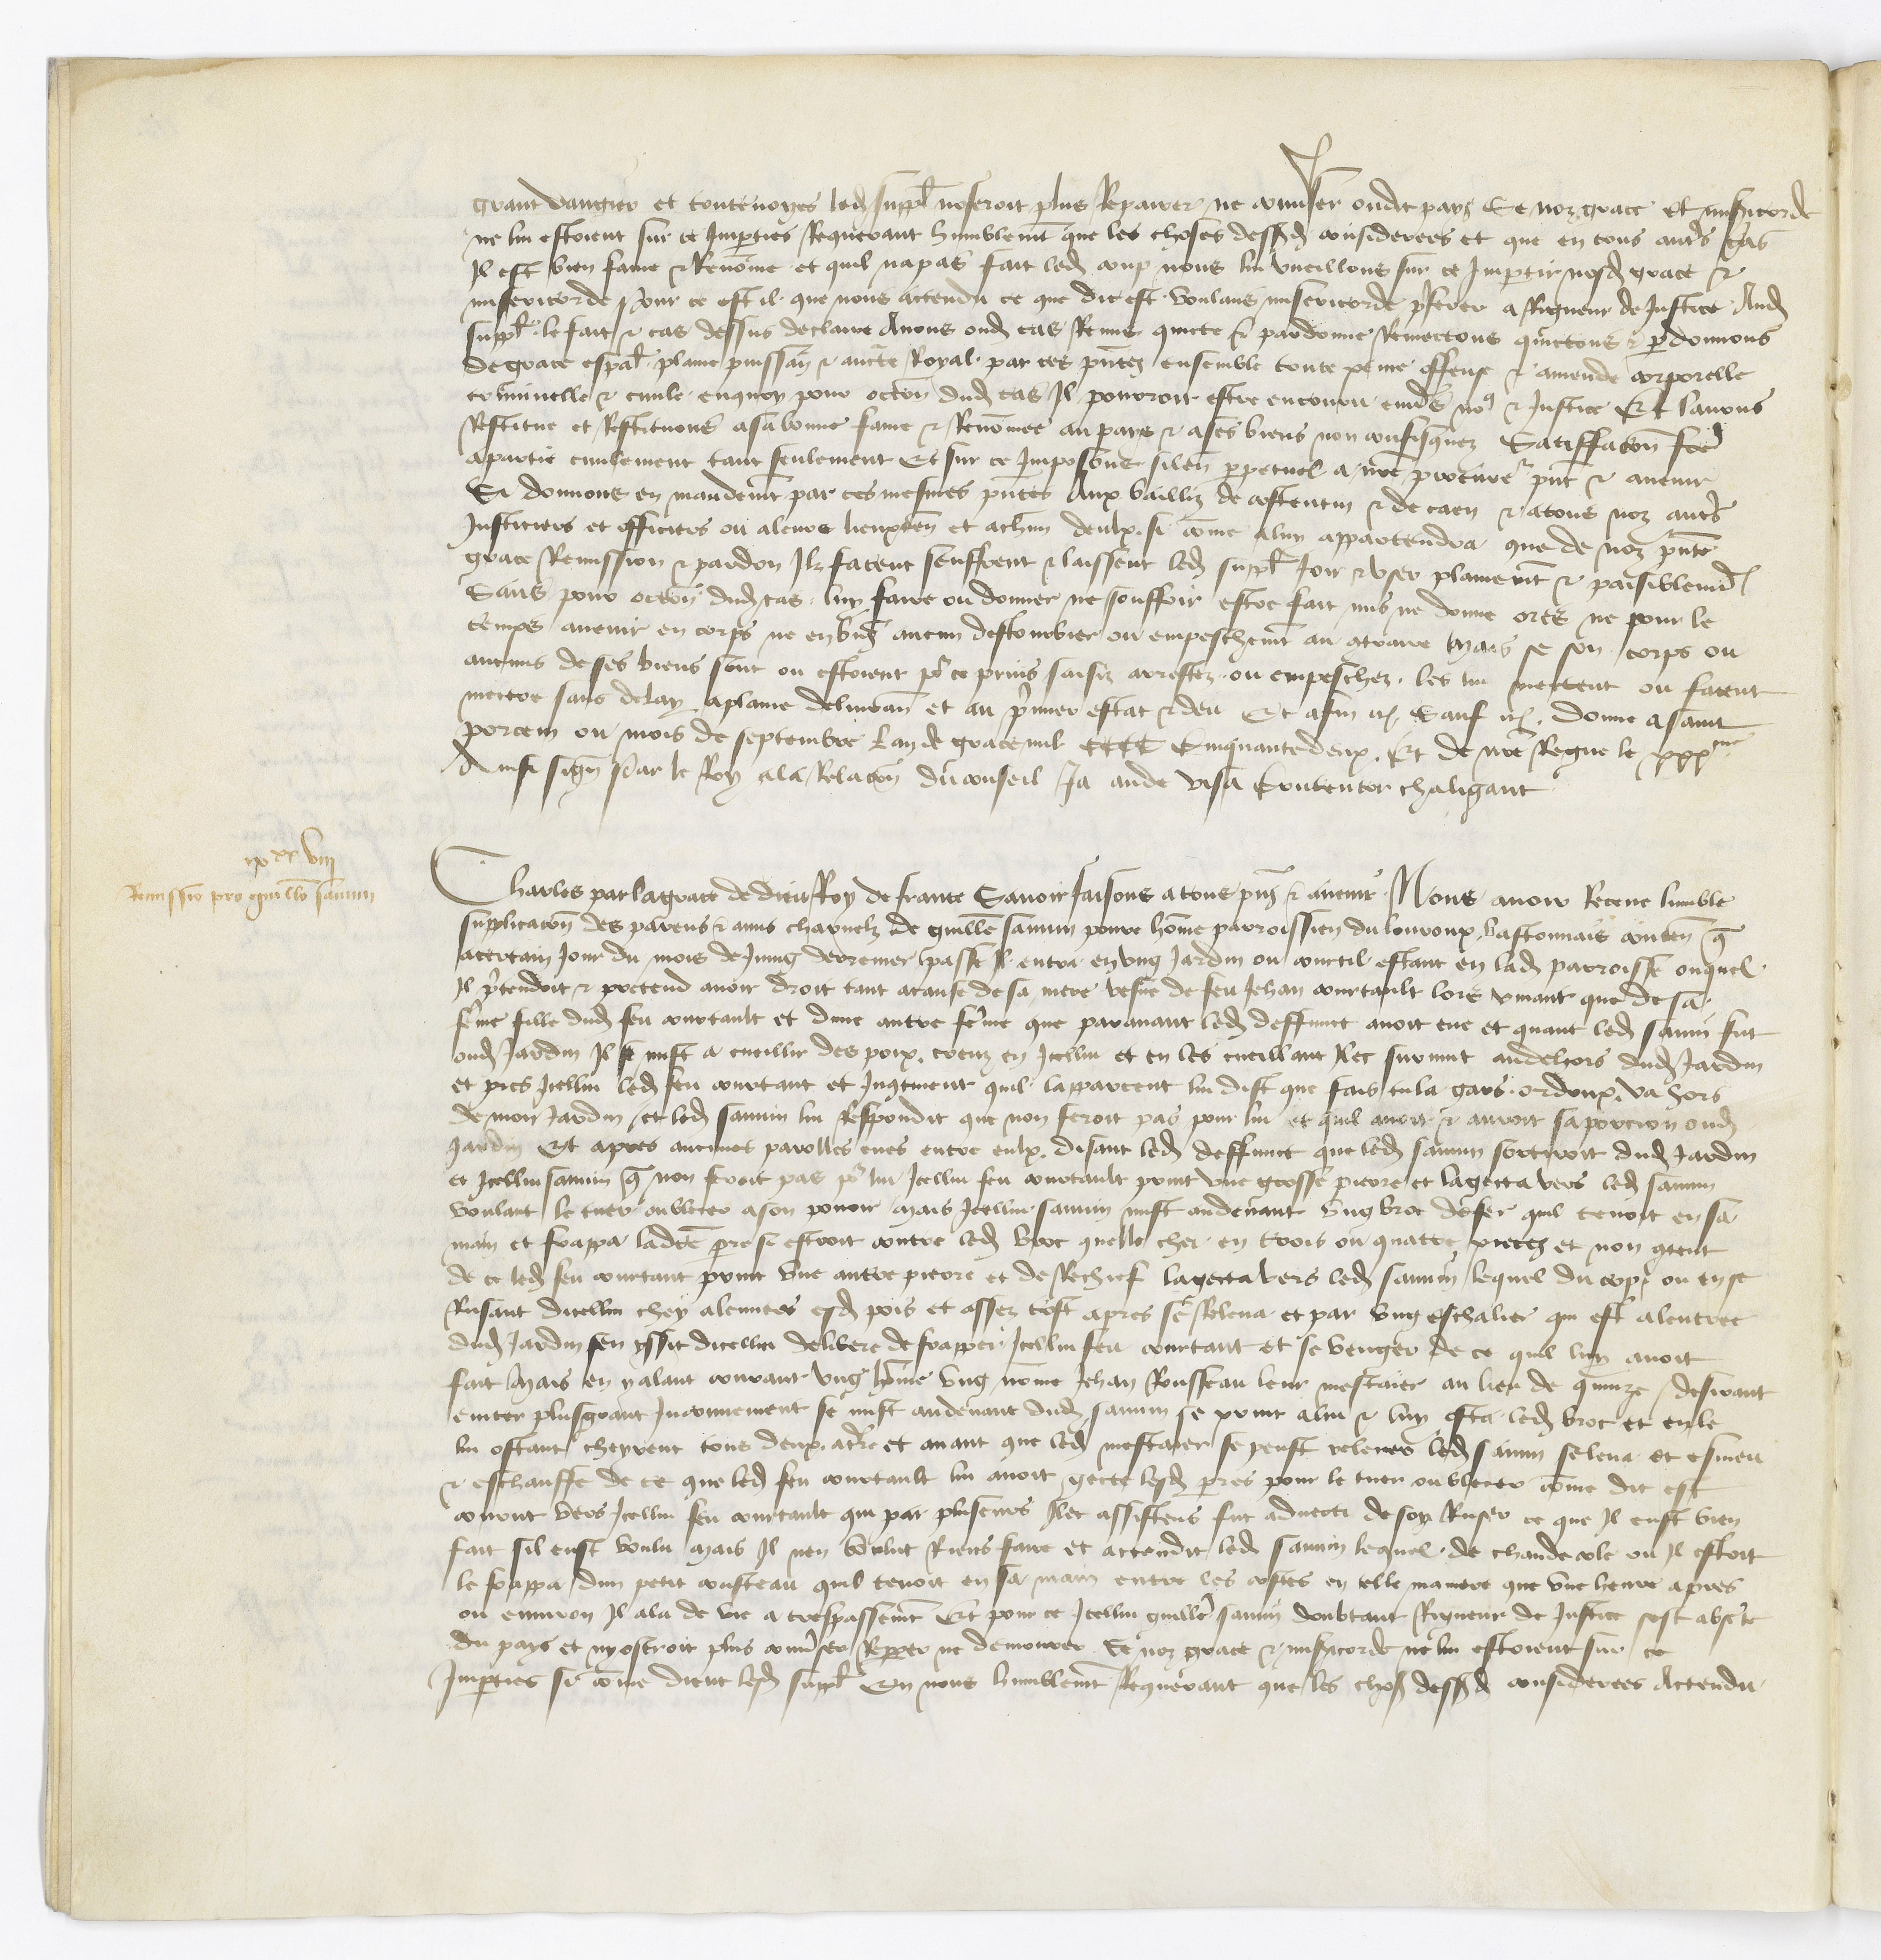 grant dangier et toutesvoyes led suppl noseroit plus Repairer ne conuser oudit pays Se noz grace et misericorde
ne lui estoient sur ce Imparties Requerant humblemt que les choses dessd considerees et que en tous autres cas
Il est bien fame & Renomme et quil na pas fait led coup nous lui vueillons sur ce Impartir nosd grace &
misericorde Pour ce est il que nous attendu ce que dit est voulans misericorde preferer a Rigueur de Justice Aud
suppl le fait & cas dessus declaire Avons oud cas Remis quicte & pardonne Remectons quictons & pardonnons
de grace espal plaine puissan & aucte Royal par ces pntes ensemble toute peine offense & amende corporelle
criminelle & civile enquoy pour occon dud cas Il pourroit estre encouru envers nous & Justice Et lavons
Restitue et Restituons a sa bonne fame & Renommee au pays & a ses biens non confisquez Satiffacon fce
a partie civilement tant seulement Et sur ce Imposons silen perpetuel a nre procureur pnt & avenir
Si donnons en mandemt par ces mesmes pntes Aux bailliz de costentin & de caen & a tous noz autres
Justiciers et officiers ou a leurs lieuxten et a chun deulx si come a luy appartendra que de noz pntes
grace Remission & pardon Ilz facent seuffrent & laissent led suppl Joir & user plainemt & paisiblement
Sans pour occon dud cas luy faire ou donner ne souffrir estre fait mis ne donne ores ne pour le
temps avenir en corps ne en biens aucun destourbier ou empeschemt au contraire Mais se son corps ou
aucuns de ses biens sont ou estoient pour ce prins saisiz arrestez ou empeschez les lui mettent ou facent
mettre sans delay a plaine delivran et au premier estat & deu Et afin etc Sauf etc Donne a saint
porcein ou mois de septembre Lan de grace mil CCCC Cinquante deux Et de nre Regne le xxxme
Ainsi signe Par le Roy a la Relacon du conseil Ja aude visa Contentor chaligaut
ix xx viij
Remissio pro guillo samin
Charles par la grace de dieu Roy de france Savoir faisons a tous pns & avenir Nous avoir Receue lumble
supplicacon des parens & amis charnelz de guille samin povre home parroissien du louroux bastonnais conten que
a certain Jour du mois de Juing derrenier passe Il entra en ung Jardin ou courtil estant en lad parroisse ouquel
Il pretendoit & pretend avoir droit tant a cause de sa mere vefve de feu Jehan courtault lors vivant que de sa
feme fille dud feu courtault et dune autre feme que paravant led deffunct avoit eue et quant led samin fut
oud Jardin Il se mist a cueillir des poix creuz en Icellui et en les cueillant Ilec survint au dehors dud Jardin
et pres Icellui led feu courtaut et Incontinent quil lapparceut lui dist que fais tu la gars ordoux va hors
de mon Jardin et led samin lui Respondit que non feroit pas pour lui et quil avoit & auroit sa porcion oud
Jardin Et apres aucunes parolles eues entre eulx disant led deffunct que led samin sortiroit dud Jardin
et Icellui samin que non feroit pas pour lui Icellui feu courtault print une grosse pierre et la gecta vers led samin
voulant le tuer ou blecier a son povoir Mais Icellui samin mist au devant ung broc de fer quil tenoit en sa
main et frappa ladte pierre si estroit contre led broc quelle cher en trois ou quatre pieces et non content
de ce led feu courtaut print une autre pierre et de Rechief la gecta vers led samin lequel du cop ou en se
Rusant dicellui chey a lenvers esd pois et assez tost apres se Releva et par ung eschalier qui est a lentree
dud Jardin sen yssit dicellui delibere de frapper Icellui feu courtaut et se venger de ce quil luy avoit
fait Mais en y alant courant ung home ung nomme Jehan Rousseau leur mestaier au lieu de quinze desirant
eviter plus grant Inconvenient se mist au devant dud samin se print a lui & luy osta led broc et en le
lui ostant cheyrent tous deux a terre et avant que led mestaier se peust relever led samin se leva et esmeu
& eschauffe de ce que led feu courtault lui avoit gecte lesd pierres pour le tuer ou blecier come dit est
courut vers Icellui feu courtault qui par pluseurs Ilec assistens fut adverti de soy Ruser ce que Il eust bien
fait sil eust voulu Mais Il nen voulut Riens faire et attendit led samin lequel de chaude cole ou Il estoit
le frappa dun petit cousteau quil tenoit en sa main entre les costes en telle maniere que une heure apres
ou environ Il ala de vie a trespassemt Et pour ce Icellui guille samin doubtant Rigueur de Justice sest absente
du pays et ny oseroit plus conuser Repairer ne demourer Se noz grace & misericorde ne lui estoient sur ce
Imparties si come dient lesd suppl En nous humblemt Requerant que les choses dessd considerees Attendu